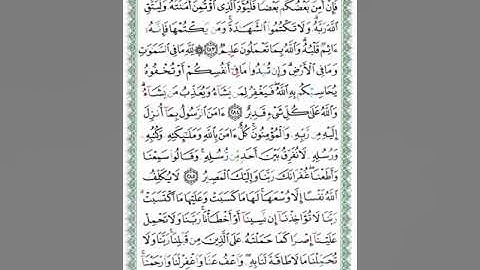 فَإِنْ أَمِنَ بَعْضُكُم بَعْضًا فَلْيُؤَدِّ الَّذِي اؤْتُمِنَ أَمَانَتَهُ وَلْيَتَّقِ
اللَّهَ رَبَّهُ ۗ وَلَا تَكْتُمُوا الشَّهَادَةَ ۚ وَمَن يَكْتُمْهَا فَإِنَّهُ
ءَاثِمٌ قَلْبُهُ ۗ وَاللَّهُ بِمَا تَعْمَلُونَ عَلِيمٌ ﴿٢٨٣﴾ لِّلَّهِ مَا فِي السَّمَاوَاتِ
وَمَا فِي الْأَرْضِ ۗ وَإِن تُبْدُوا مَا فِي أَنفُسِكُمْ أَوْ تُخْفُوهُ
يُحَاسِبْكُم بِهِ اللَّهُ ۖ فَيَغْفِرُ لِمَن يَشَاءُ وَيُعَذِّبُ مَن يَشَاءُ ۗ
وَاللَّهُ عَلَىٰ كُلِّ شَيْءٍ قَدِيرٌ ﴿٢٨٤﴾ ءَامَنَ الرَّسُولُ بِمَا أُنزِلَ
إِلَيْهِ مِن رَّبِّهِ وَالْمُؤْمِنُونَ ۚ كُلٌّ ءَامَنَ بِاللَّهِ وَمَلَائِكَتِهِ وَكُتُبِهِ
وَرُسُلِهِ لَا نُفَرِّقُ بَيْنَ أَحَدٍ مِّن رُّسُلِهِ ۚ وَقَالُوا سَمِعْنَا
وَأَطَعْنَا ۖ غُفْرَانَكَ رَبَّنَا وَإِلَيْكَ الْمَصِيرُ ﴿٢٨٥﴾ لَا يُكَلِّفُ
اللَّهُ نَفْسًا إِلَّا وُسْعَهَا ۚ لَهَا مَا كَسَبَتْ وَعَلَيْهَا مَا اكْتَسَبَتْ ۗ
رَبَّنَا لَا تُؤَاخِذْنَا إِن نَّسِينَا أَوْ أَخْطَأْنَا ۚ رَبَّنَا وَلَا تَحْمِلْ
عَلَيْنَا إِصْرًا كَمَا حَمَلْتَهُ عَلَى الَّذِينَ مِن قَبْلِنَا ۚ رَبَّنَا وَلَا
تُحَمِّلْنَا مَا لَا طَاقَةَ لَنَا بِهِ ۖ وَاعْفُ عَنَّا وَاغْفِرْ لَنَا وَارْحَمْنَا ۚ